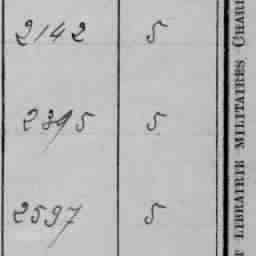 2142 5
2395 5
2597 5
T LIBRAIRIE MILITAIRES CHARL